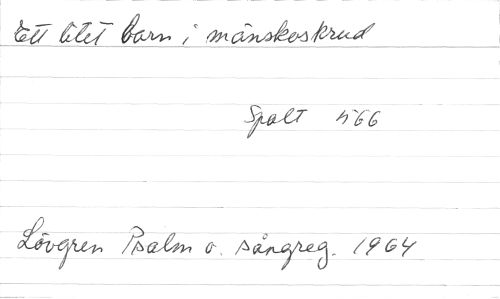 Ett litet barn i månskoskrud
Spalt 566
Lövgren Psalm o. sångreg. 1964